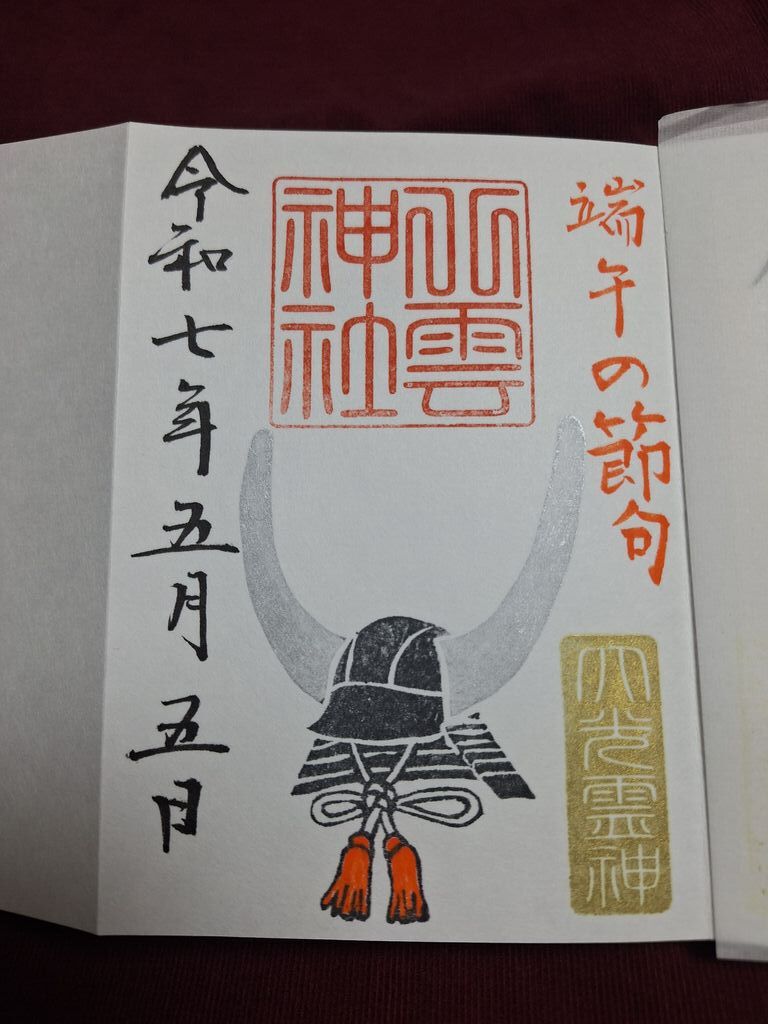 端午の節句
八雲
神社
大光霊神
令和七年五月五日